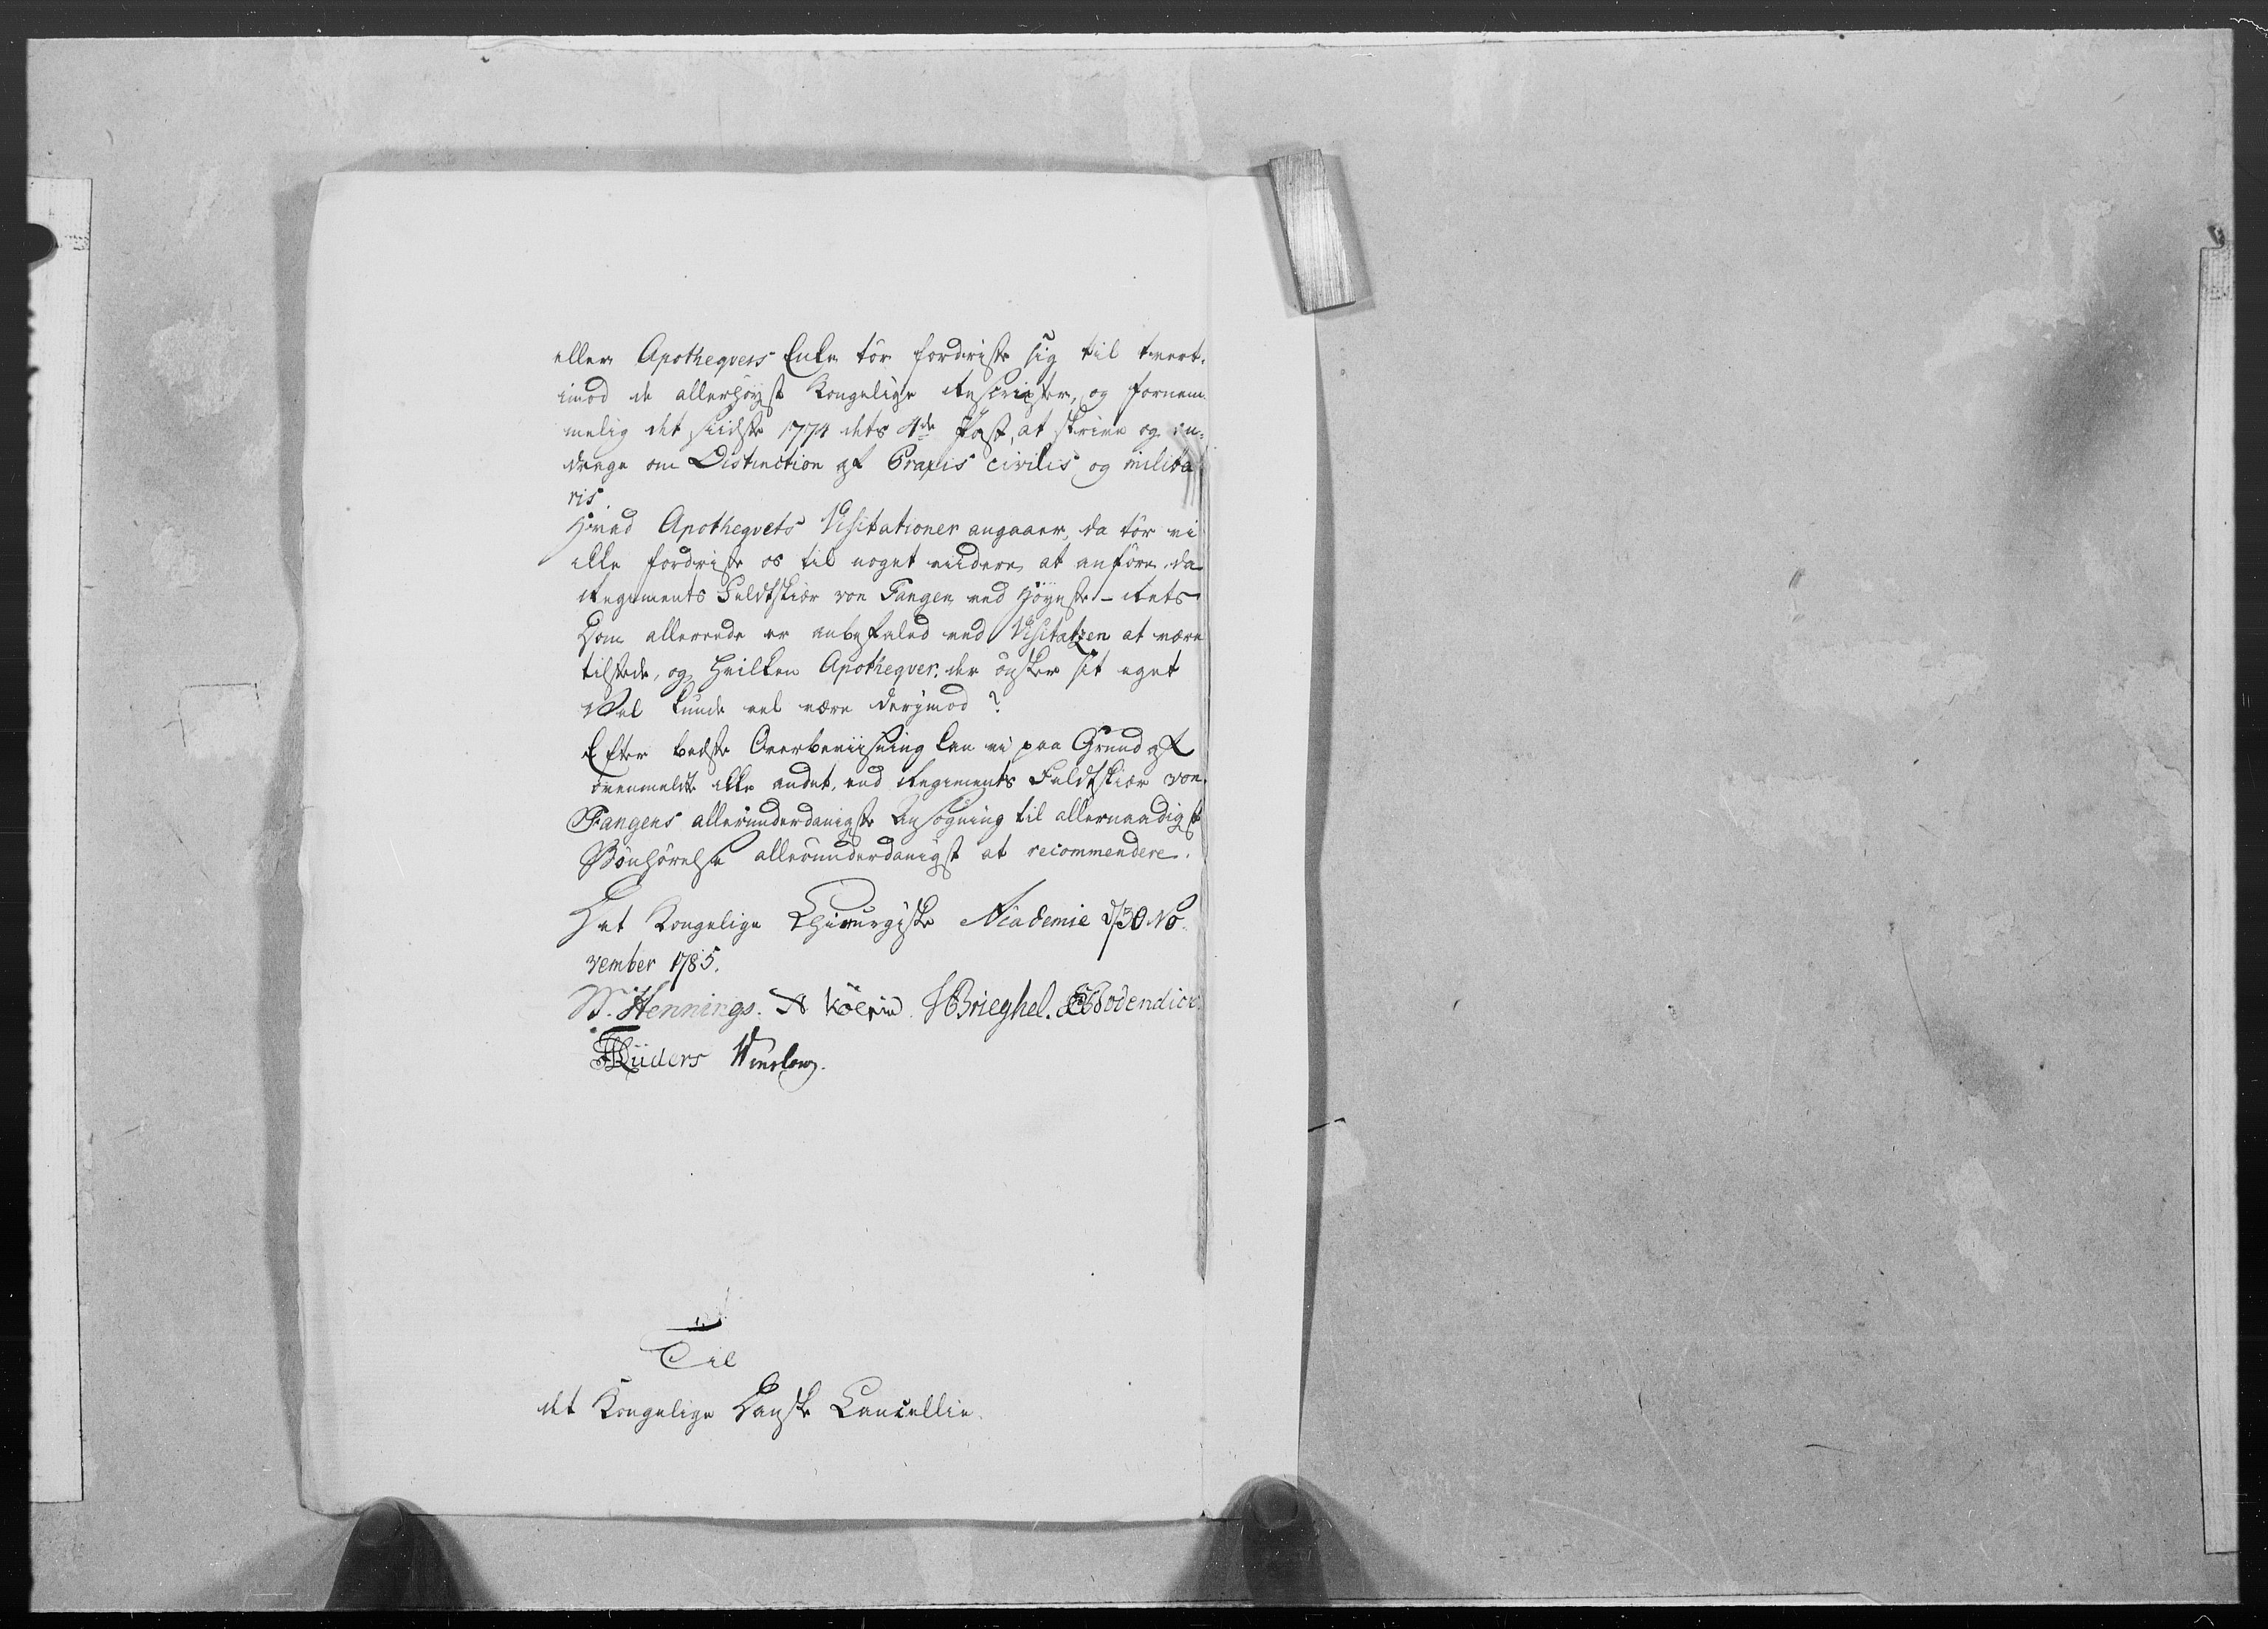 eller Apotheqvers Enke tör fordriste sig til tvert-
imod de allerhöyst Kongelige Rescripter, og fornem-
melig det siidste 1774 dets 4de Post, at skrive og an-
drage om Distinction af Praxis civilis og milita-
ris.
Hvad Apotheqvets Visitationer angaaer, da tör vi
ikke fordriste os til noget viidere at anföre, da
Regiments Feldtskiær von Fangen ved Höyeste-Rets
Dom allerede er anbefaled ved Visitatzen at være
tilstede, og hvilken Apotheqver, der önsker sit eget
Vel kunde vel være derjmod?
Efter bedste Overbeviisning kan vi paa Grund af
ovenmeldte ikke andet, end Regiments Feldtskiær von
Fangens allerunderdanigste Ansögning til allernaadigst
Bönhörelse allerunderdanigst at recommendere.
Det Kongelige Chirurgiske Academie d. 30 No-
vember 1785.
W. Hennings. A Kölpin. HBrieghel. Bodendick.
Lüders Winslow.
Til
det Kongelige Danske Cancellie.